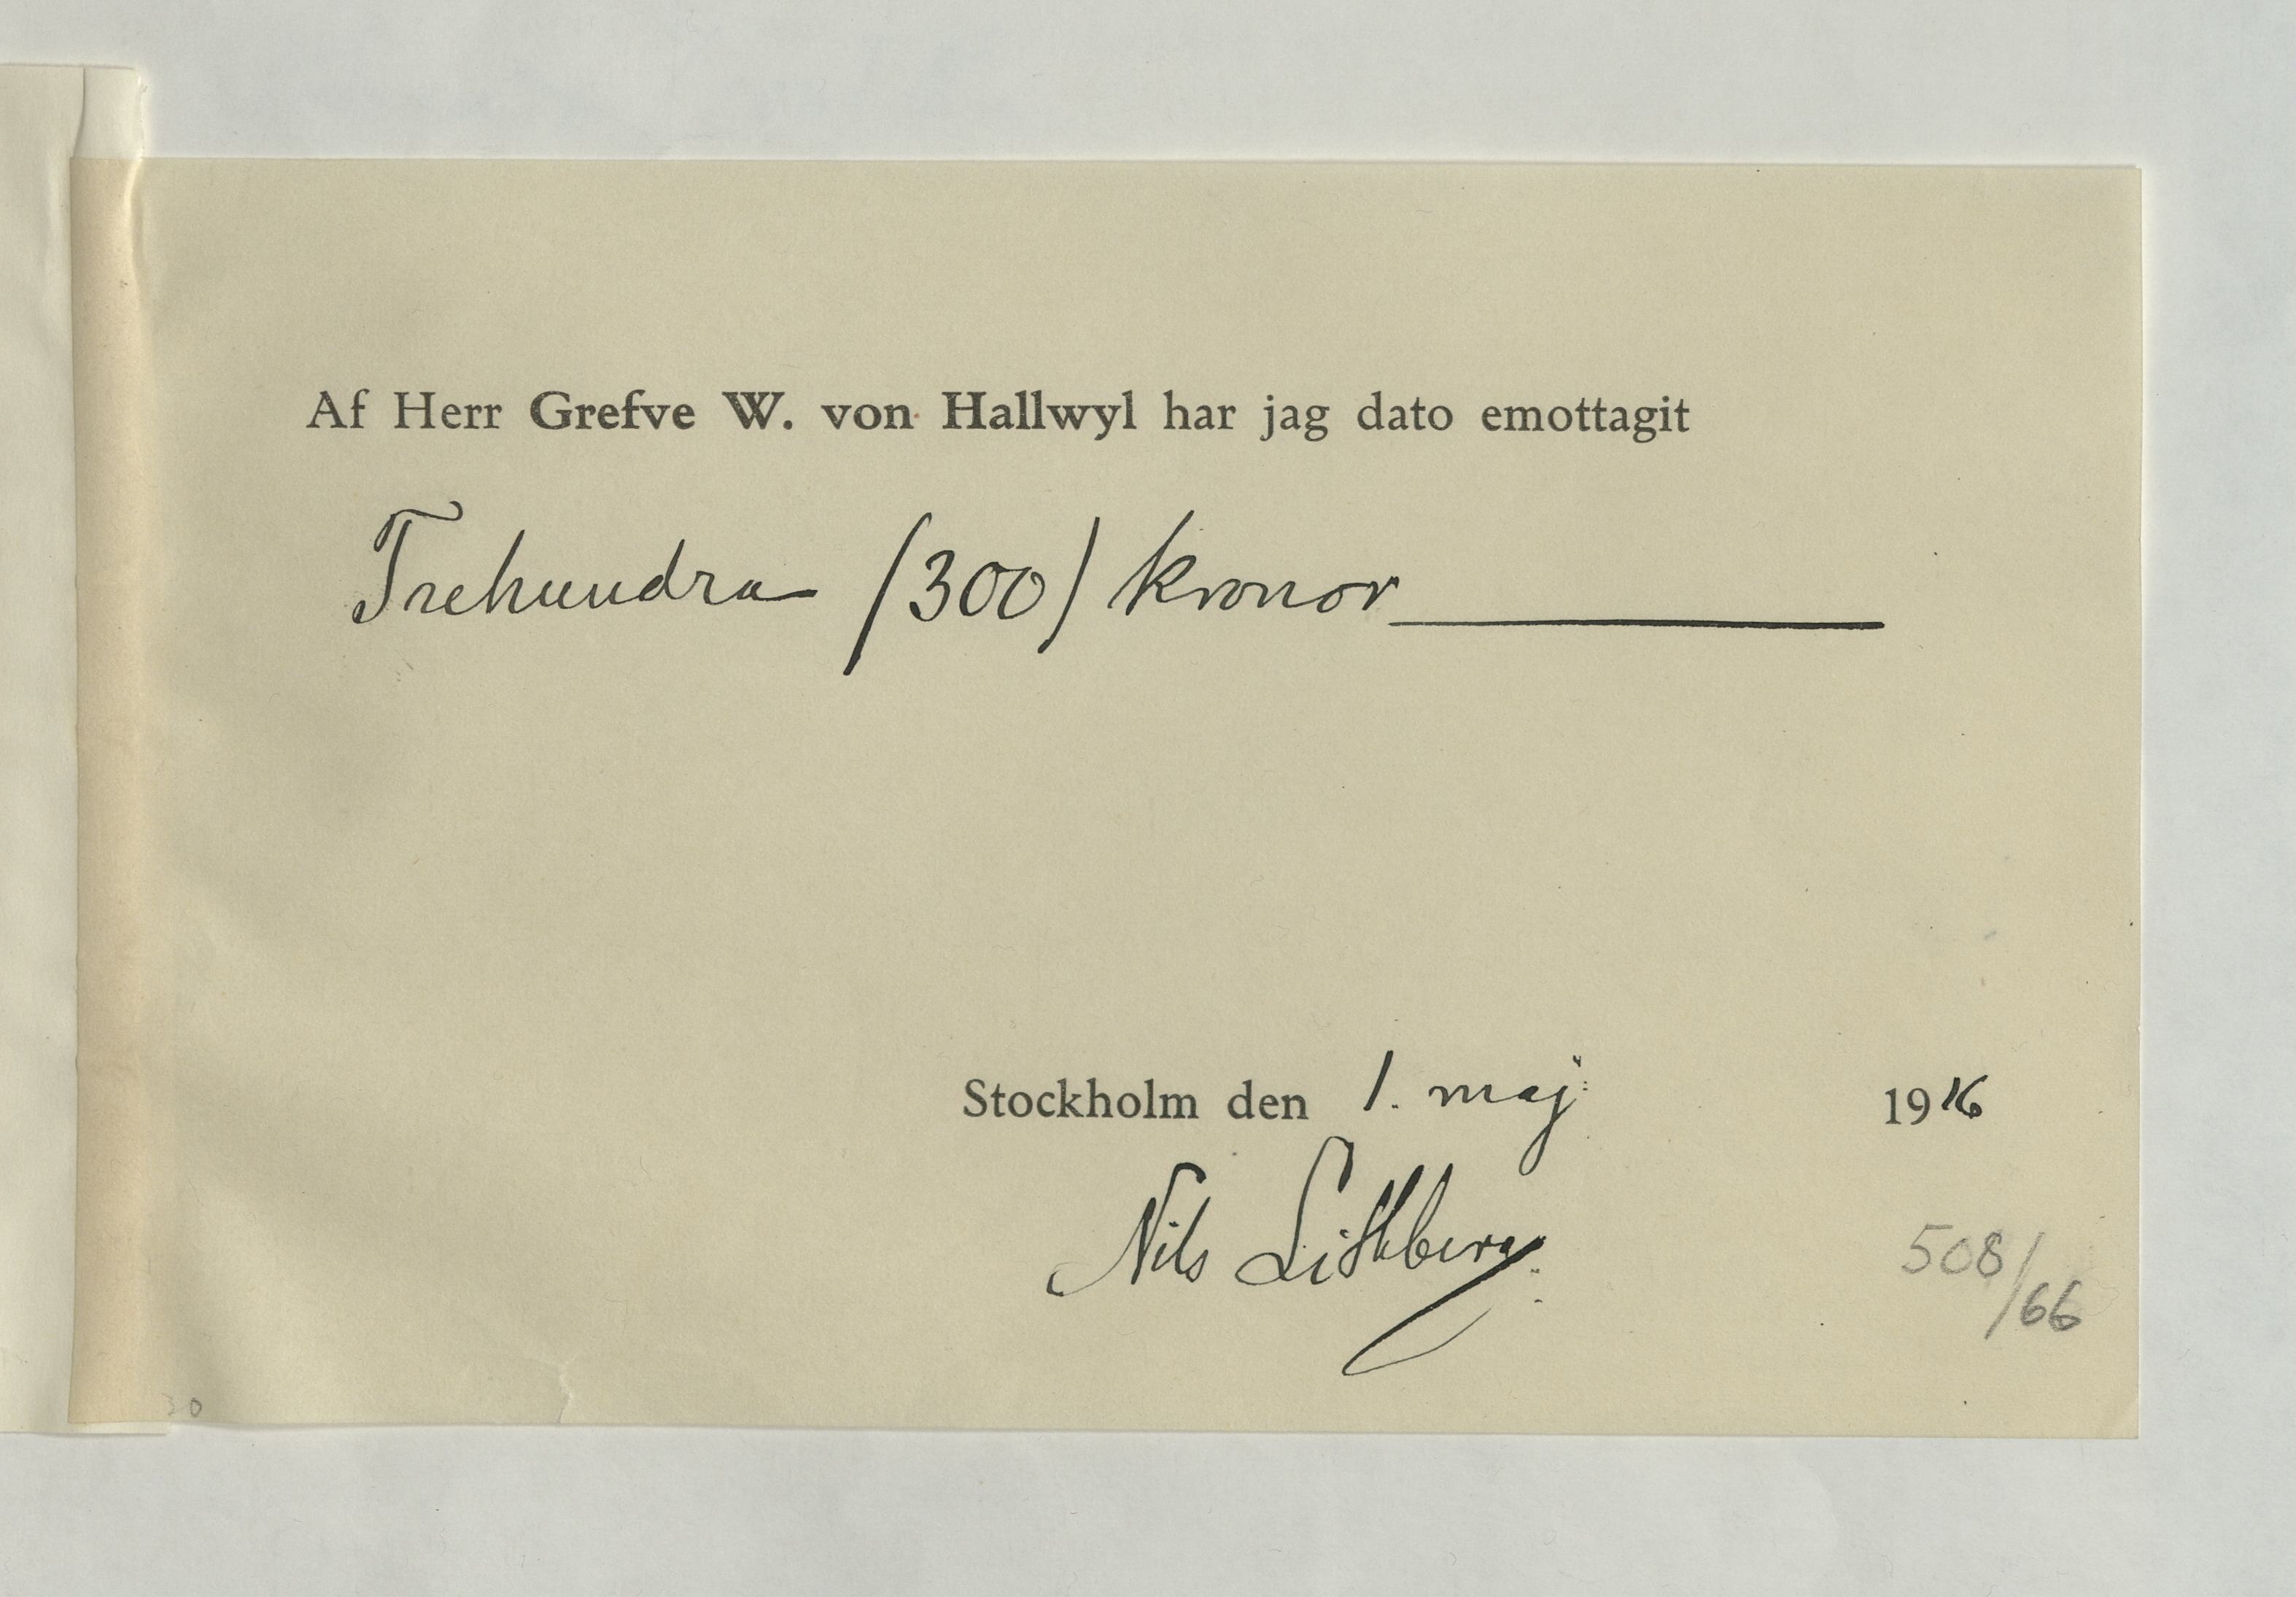 Af Herr Grefve W. von Hallwyl har jag dato emottagit
Trehundra (300) kronor
Stockholm den 1. maj 1916
Nils Lithberg
508/66